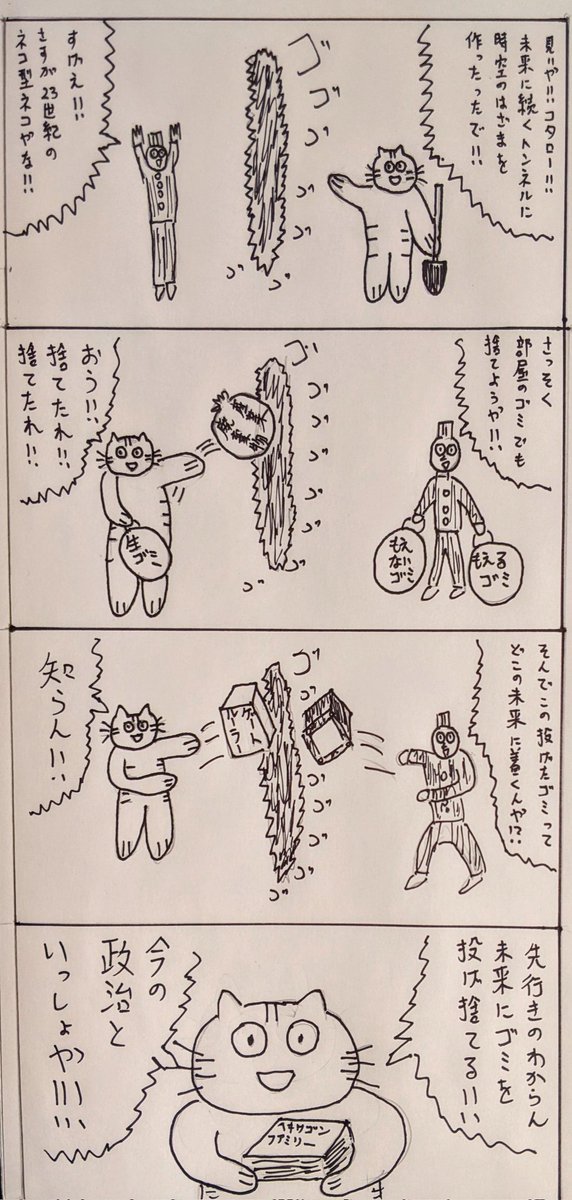 見いや!!コタロー!!
未来に続くトンネルに
時空のはざまを
作ったったで!!
ゴゴゴゴゴゴゴ
すげぇ!!
さすが23世紀の
ネコ型ネコやな!!
さっそく
部屋のゴミでも
捨てようや!!
もえる
ゴミ
もえ
ない
ゴミ
ゴゴゴゴゴゴゴ
産業
廃棄物
生
ゴミ
おう!!
捨てたれ!!
捨てたれ!!
そんでこの投げたゴミって
どこの未来に着くんや!?
ゴゴゴゴゴゴゴ
知らん!!
先行きのわからん
未来にゴミを
投げ捨てる!!
今の
政治と
いっしょや!!!!
ファミリー